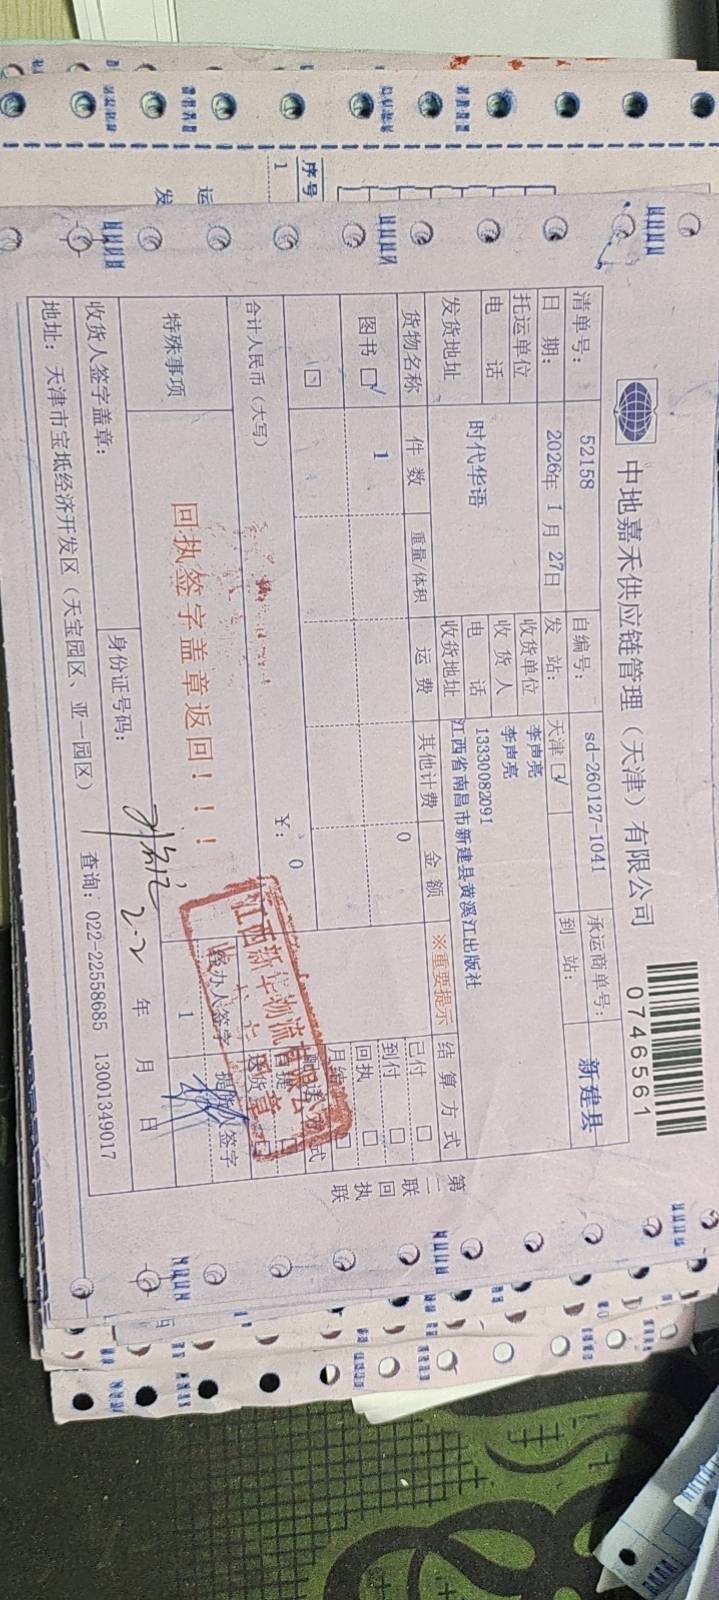 中地嘉禾供应链管理（天津）有限公司
0746561
清单号： 52158 自编号： sd-260127-1041 承运商单号：
日 期： 2026年 1 月 27日 发 站： 天津 到 站： 新建县
托运单位 收货单位 李声亮
收 货 人 李声亮
电 话 电 话 13330082091
发货地址 时代华语 收货地址 江西省南昌市新建县黄溪江出版社
货物名称 件 数 重量/体积 运 费 其他计费 金 额 ※重要提示 结 算 方 式
图书 √ 1 0
已付
到付
回执
月结
合计人民币（大写） ¥： 0
自提
送货
特殊事项 回执签字盖章返回！！！
经办人签字 提货人签字
1
江西新华物流有限公司
收货人签字盖章： 身份证号码： 2-2 年 月 日
地址：天津市宝坻经济开发区（天宝园区、亚一园区） 查询：022-22558685 13001349017
第二联 回执联
序号
1
运
发